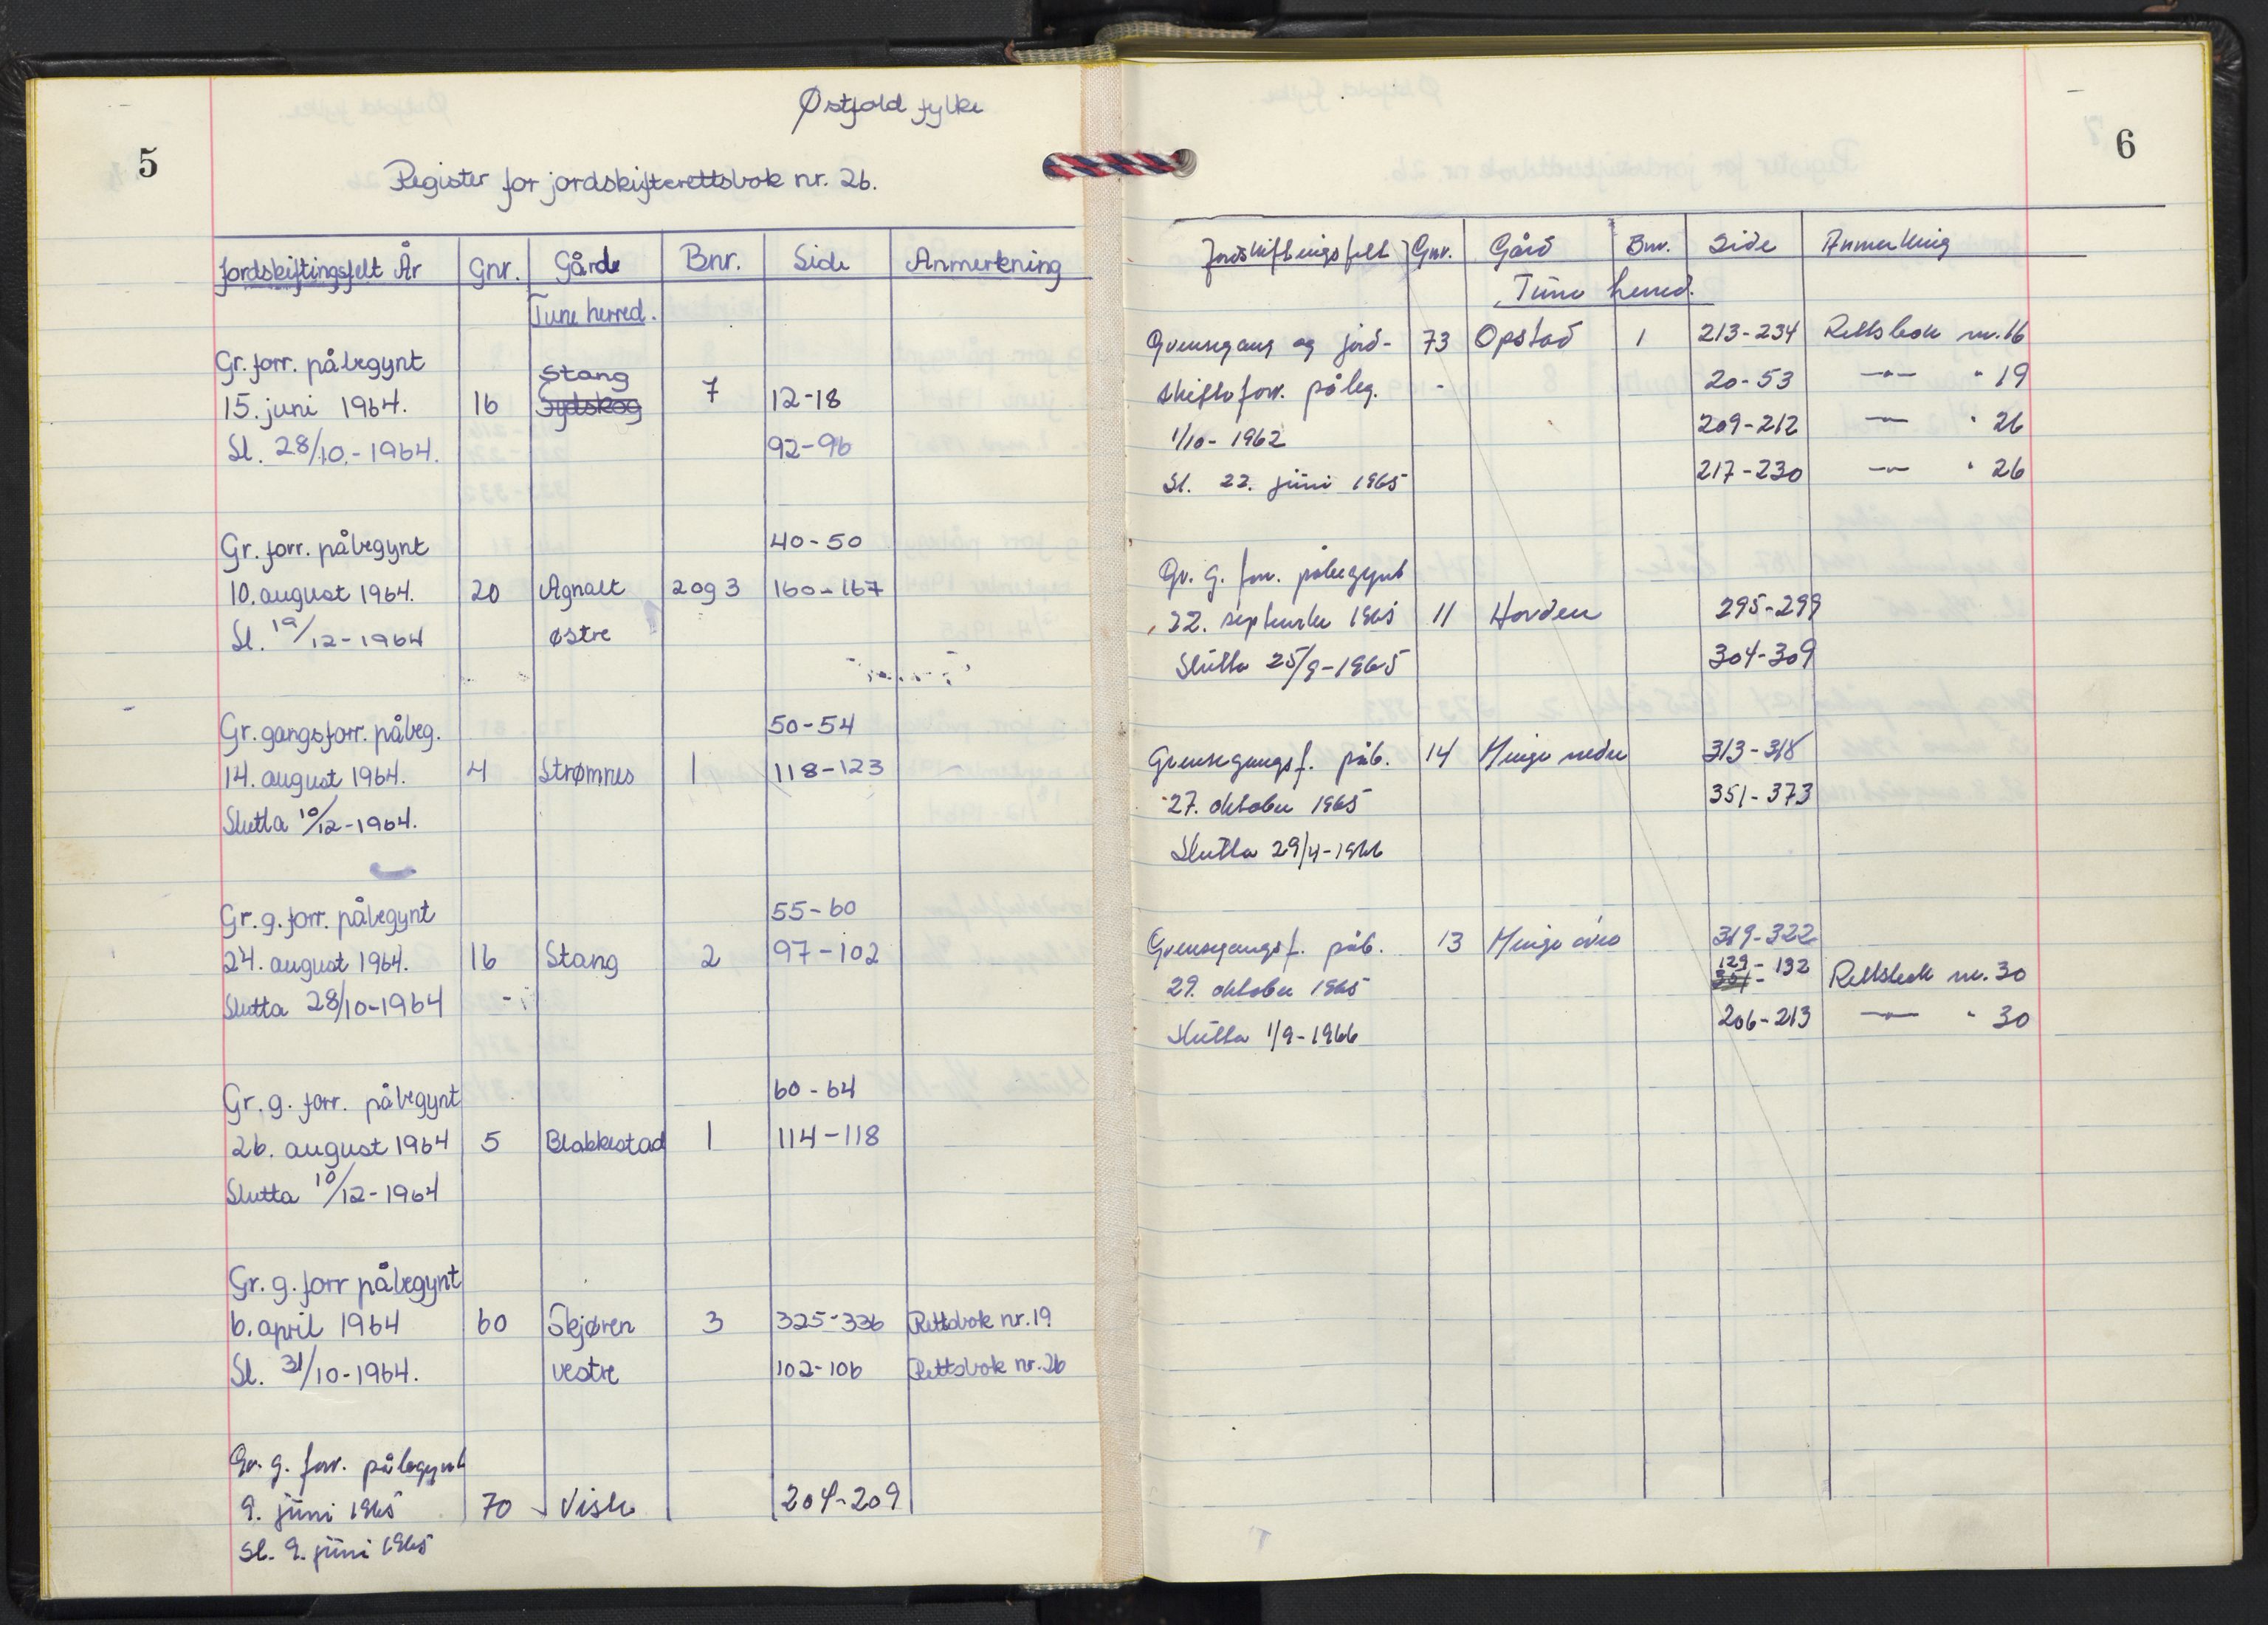 Østfold fylke
5
Register for jordskifterettsbok nr. 26.
Jordskiftingsfelt År Gnr. Gårde Bnr. Side Anmerkning
Tune herred.
Gr. forr. påbegynt
Stang
15. juni 1964. 16 Sydskog 7 12-18
Sl. 28/10.-1964. 92-96
Gr. forr. påbegynt 40-50
10. august 1964. 20 Agnalt 2 og 3 160-167
Sl. 19/12-1964 østre
Gr. gangsforr. påbeg. 50-54
14. august 1964. 4 Strømnes 1 118-123
Slutta 10/12-1964.
Gr. g. forr. påbegynt 55-60
24. august 1964. 16 Stang 2 97-102
Slutta 28/10-1964
Gr. g. forr. påbegynt 60-64
26. august 1964 5 Blakkestad 1 114-118
Slutta 10/12-1964
Gr. g. forr påbegynt
6. april 1964 60 Skjøren 3 325-336 Rettsbok nr. 19
Sl. 31/10-1964. vestre 102-106 Rettsbok nr. 26
Gr. g. forr. påbegynt
9. juni 1965 70 Visk 204-209
Sl. 9. juni 1965
6
Jordskiftingsfelt Gnr. Gård Bnr. Side Anmerkning
Tune herred.
Grensegang og jord- 73 Opstad 1 213-234 Rettsbok nr. 16
skifteforr. påbeg. 20-53 -"- " 19
1/10-1962 209-212 -"- " 26
Sl. 22. juni 1965 217-230 -"- " 26
Gr. g. forr. påbegynt
22. september 1965 11 Horden 295-299
Slutta 25/9-1965 304-309
Grensegangsf. påb. 14 Minge nedre 313-318
27. oktober 1965 351-373
Slutta 29/4-1966
Grensegangsf. påb. 13 Minge øvre 319-322
29. oktober 1965 129-132 Rettsbok nr. 30
Slutta 1/9-1966 206-213 -"- " 30